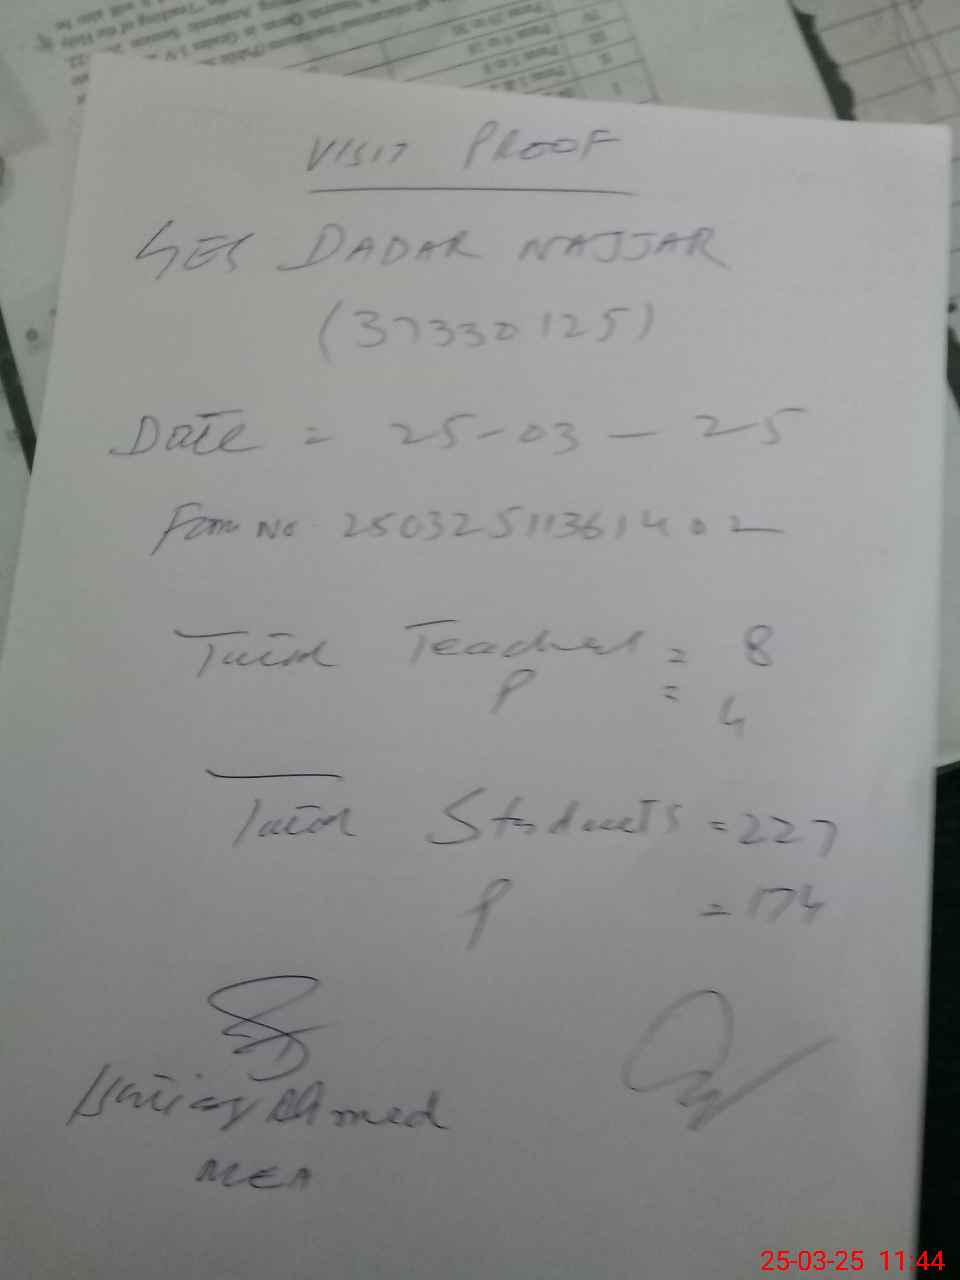 VISIT PROOF
GES DADAR NAJJAR
(37330125)
Date = 25-03-25
Form No. 25032511361402
Total Teachers = 8
P = 4
Total Students = 227
P = 174
Ishtiaq Ahmed
MEA
25-03-25 11:44